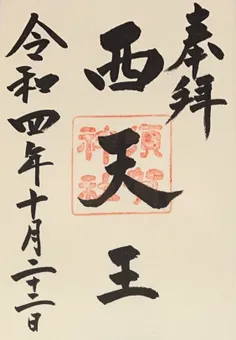 奉拝
西天王
須賀神社
令和四年十月二十二日